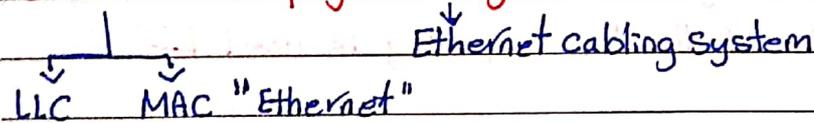 Ethernet cabling system
LLC MAC "Ethernet"